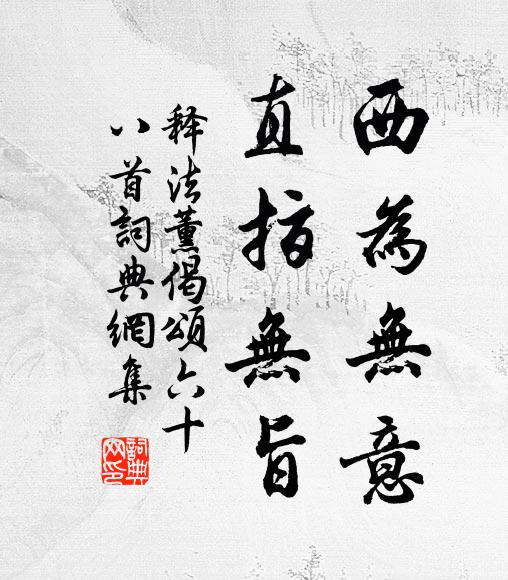 西為無意
直指無旨
释法薰偈頌六十
八首詞典網集
詞典
网印